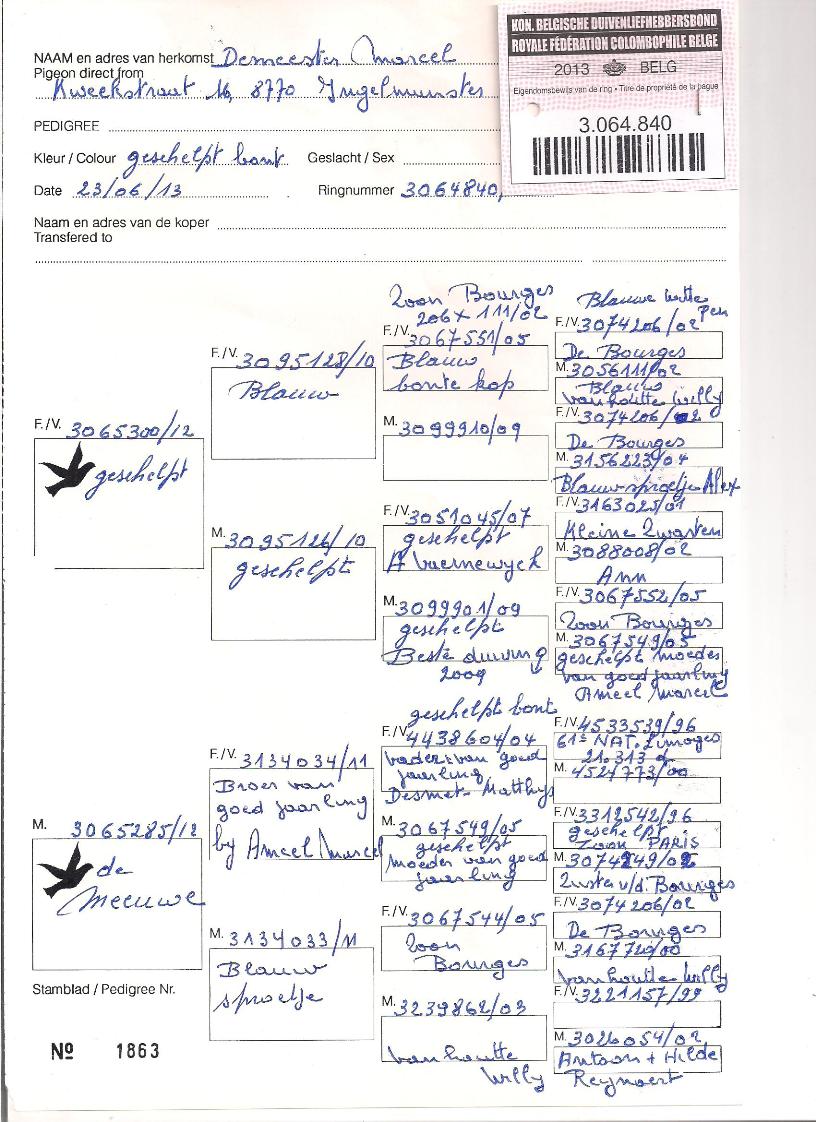 KON. BELGISCHE DUIVENLIEFHEBBERSBOND
ROYALE FÉDÉRATION COLOMBOPHILE BELGE
2013 BELG
Eigendomsbewijs van de ring • Titre de propriété de la bague
3.064.840
NAAM en adres van herkomst Demeester Marcel
Pigeon direct from
Kweekstraat 16, 8770 Ingelmunster
PEDIGREE
Kleur / Colour geschelpt bont Geslacht / Sex
Date 23/06/13 Ringnummer 3064840,
Naam en adres van de koper
Transfered to
F./V. 3065300/12
geschelpt
M. 3065285/12
de
Meeuwe
Stamblad / Pedigree Nr.
Nº 1863
F./V. 3095128/10
Blauw
M. 3095126/10
geschelpt
F./V. 3134034/11
Broer van
goed jaarling
by Ameel Marcel
M. 3134033/11
Blauw
sproetje
Zoon Bourges
206 x 111/02
F./V. 3067551/05
Blauw
bonte kop
M. 3099910/09
F./V. 3051045/07
geschelpt
A Vaernewyck
M. 3099901/09
geschelpt
Beste duiving
2009
geschelpt bont
F./V. 4438604/04
vader van goed
jaarling
Desmet-Matthys
M. 3067549/05
geschelpt
moeder van goed
jaarling
F./V. 3067544/05
Zoon
Bourges
M. 3239862/03
Vanhoutte
Willy
Blauwe witte
Pen
F./V. 3074206/02
De Bourges
M. 3056111/02
Blauw
Vanhoutte Willy
F./V. 3074206/02
De Bourges
M. 3156223/04
Blauw sproetje Alex
F./V. 3163025/01
Kleine Zwarten
M. 3088008/02
Ann
F./V. 3067552/05
Zoon Bourges
M. 3067549/05
geschelpt moeder
van goed jaarling
Ameel Marcel
F./V. 4533539/96
61e NAT. Limoges
21.313 d
M. 4524773/00
F./V. 3312542/96
geschelpt
Zoon PARIS
M. 3074249/02
Zuster v/d. Bourges
F./V. 3074206/02
De Bourges
M. 3167720/00
Vanhoutte Willy
F./V. 3221157/99
M. 3026054/02
Antoon + Hilde
Reynaert